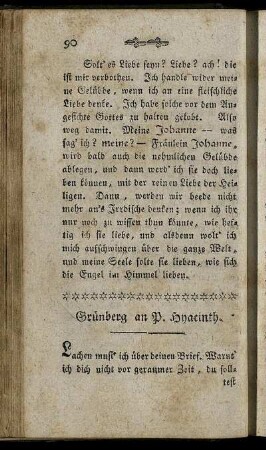 90
Sollt' es Liebe seyn? Liebe? ach! die
ist mir verbothen. Ich handle wider mei⸗
ne Gelübde, wenn ich an eine fleischliche
Liebe denke. Ich habe solche vor dem An⸗
gesichte Gottes zu halten gelobt. Also
weg damit. Meine Johanne — was
sag' ich? meine? — Fräulein Johanne,
wird bald auch die nehmlichen Gelübde
ablegen, und dann werd' ich sie doch lie⸗
ben können, mit der reinen Liebe der Hei⸗
ligen. Dann, werden wir beede nicht
mehr an's Irrdische denken; wenn ich ihr
nur noch zu wissen thun könnte, wie hef⸗
tig ich sie liebe, und alsdenn wollt' ich
mich aufschwingen über die ganze Welt,
und meine Seele solte sie lieben, wie sich
die Engel im Himmel lieben.
Grünberg an P. Hyacinth.
Lachen muß ich über deinen Brief. Warnt'
ich dich nicht vor geraumer Zeit, du soll⸗
test